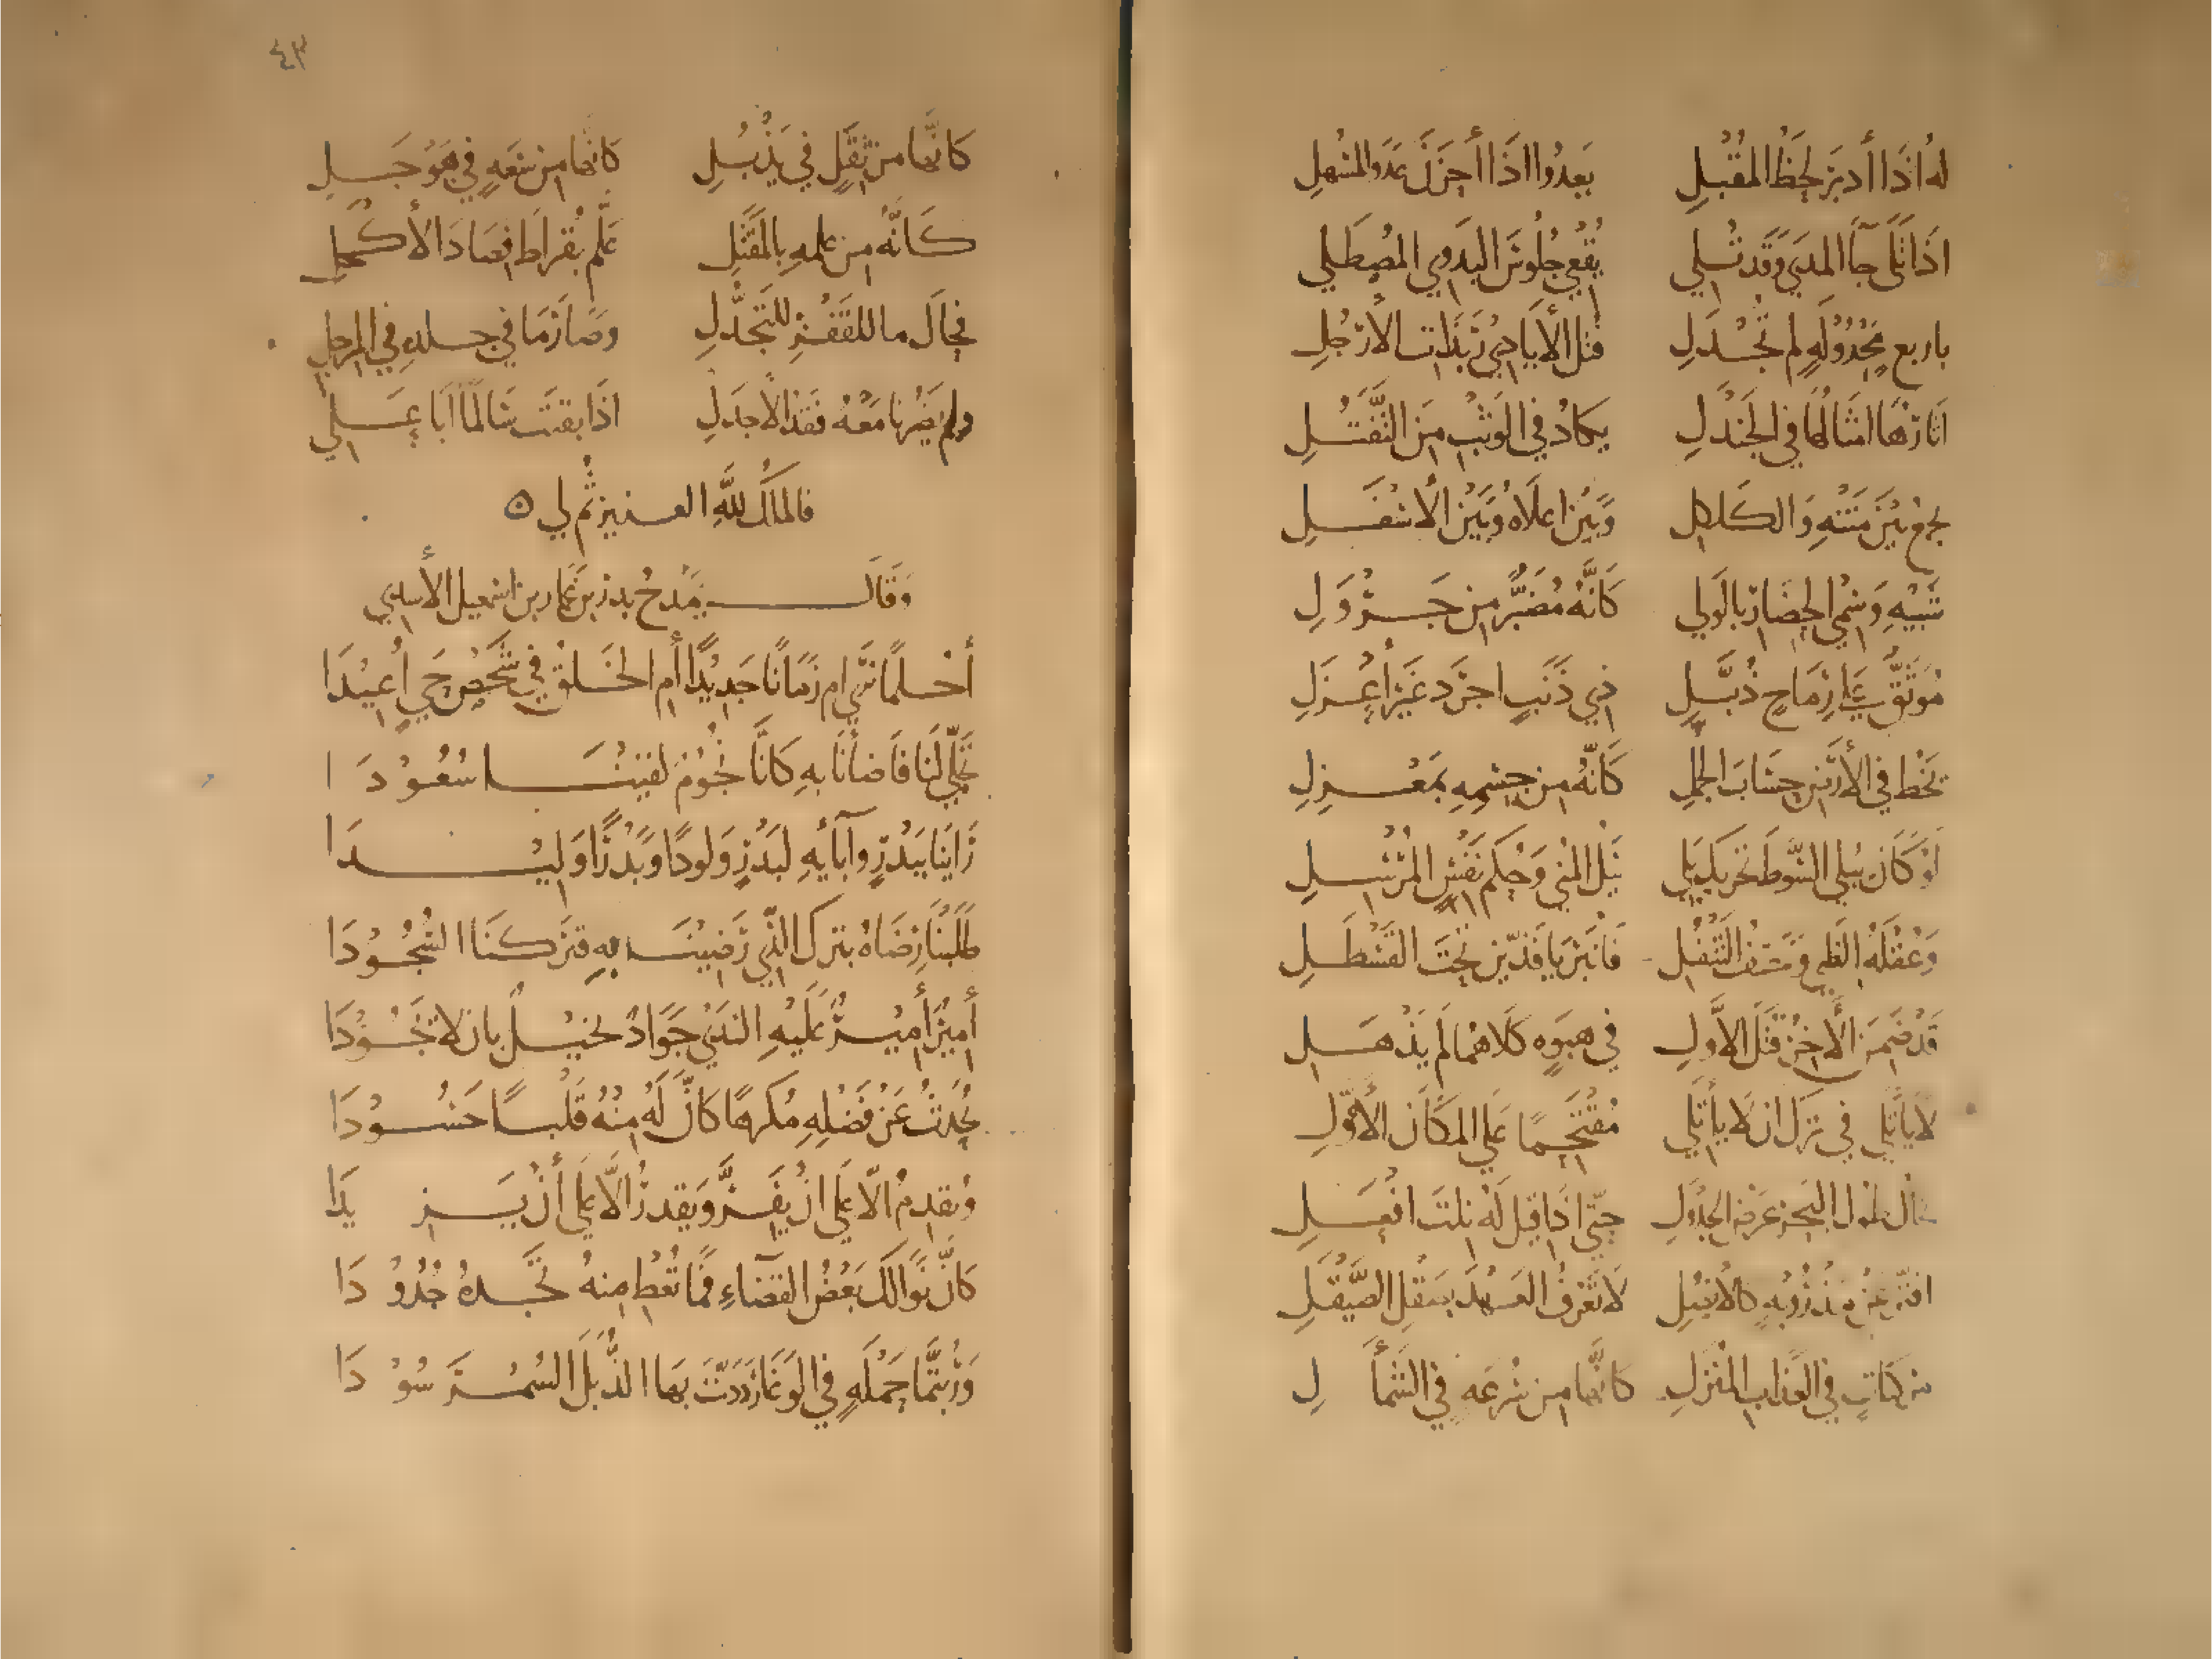 له اذا أدبر لحظ المقبل يعدوا اذا أحزن عدو المسهل
اذا تلى جآ المدى وقد تلي يقعي جلوس البدوي المصطلي
باربع مجدولة لم تجدل فتل الأيادي ربذات الأرجل
اثارها امثالها في الجندل يكاد في الوثب من التفتل
يجمع بين متنه والكلكل وبين اعلاه وبين الأسفل
شبيه وسمي الحضار بالولي كأنه مضبر من جرول
موثق على رماح ذبل ذي ذنب اجرد غير أعزل
يخط في الأرض حساب الجمل كأنه من جسمه بمعزل
لو كان يبلي السوط تحريك بلي نيل المنى وحكم نفس المرسل
وعقلة الظبي وحتف التتفل فانبريا فذين تحت القسطل
قد ضمن الأخر قتل الأول في هبوة كلاهما لم يذهل
لا يأتلي في ترك ان لا يأتلي مقتحما على المكان الأهول
يخال طول البحر عرض الجدول حتى اذا قيل له نلت افعل
افتر عن مذروبة كالأنصل لا تعرف العهد بصقل الصيقل
مركبات في العذاب المنزل كأنها من سرعة في الشمأل
٤٣
كأنها من ثقل في يذبل كأنها من سعة في هوجل
كأنه من علمه بالمقتل علم بقراط فصاد الأكحل
فحال ما للقفز للتجدل وصار ما في جلده في المرجل
ولم يضرنا معه فقد الأجدل اذا بقيت سالما أبا علي
فالملك لله العزيز ثم لي ه
وقال يمدح بدر بن عمار بن اسمعيل الأسدي
أحلما نرى ام زمانا جديدا أم الخلق في شخص حي أعيدا
تجلى لنا فاضأنا به كأنا نجوم لقينا سعودا
رأينا ببدر وآبآئه لبدر ولودا وبدرا وليدا
طلبنا رضاه بترك الذي رضينا به فتركنا السجودا
أمير أمير عليه الندى جواد بخيل بان لا تجودا
يحدث عن فضله مكرها كأن له منه قلبا حسودا
ويقدم الا على ان يفر ويقدر الا على أن يزيدا
كأن نوالك بعض القضاء فما تعط منه نجده جدودا
وربتما حملة في الوغا رددت بها الذبل السمر سودا